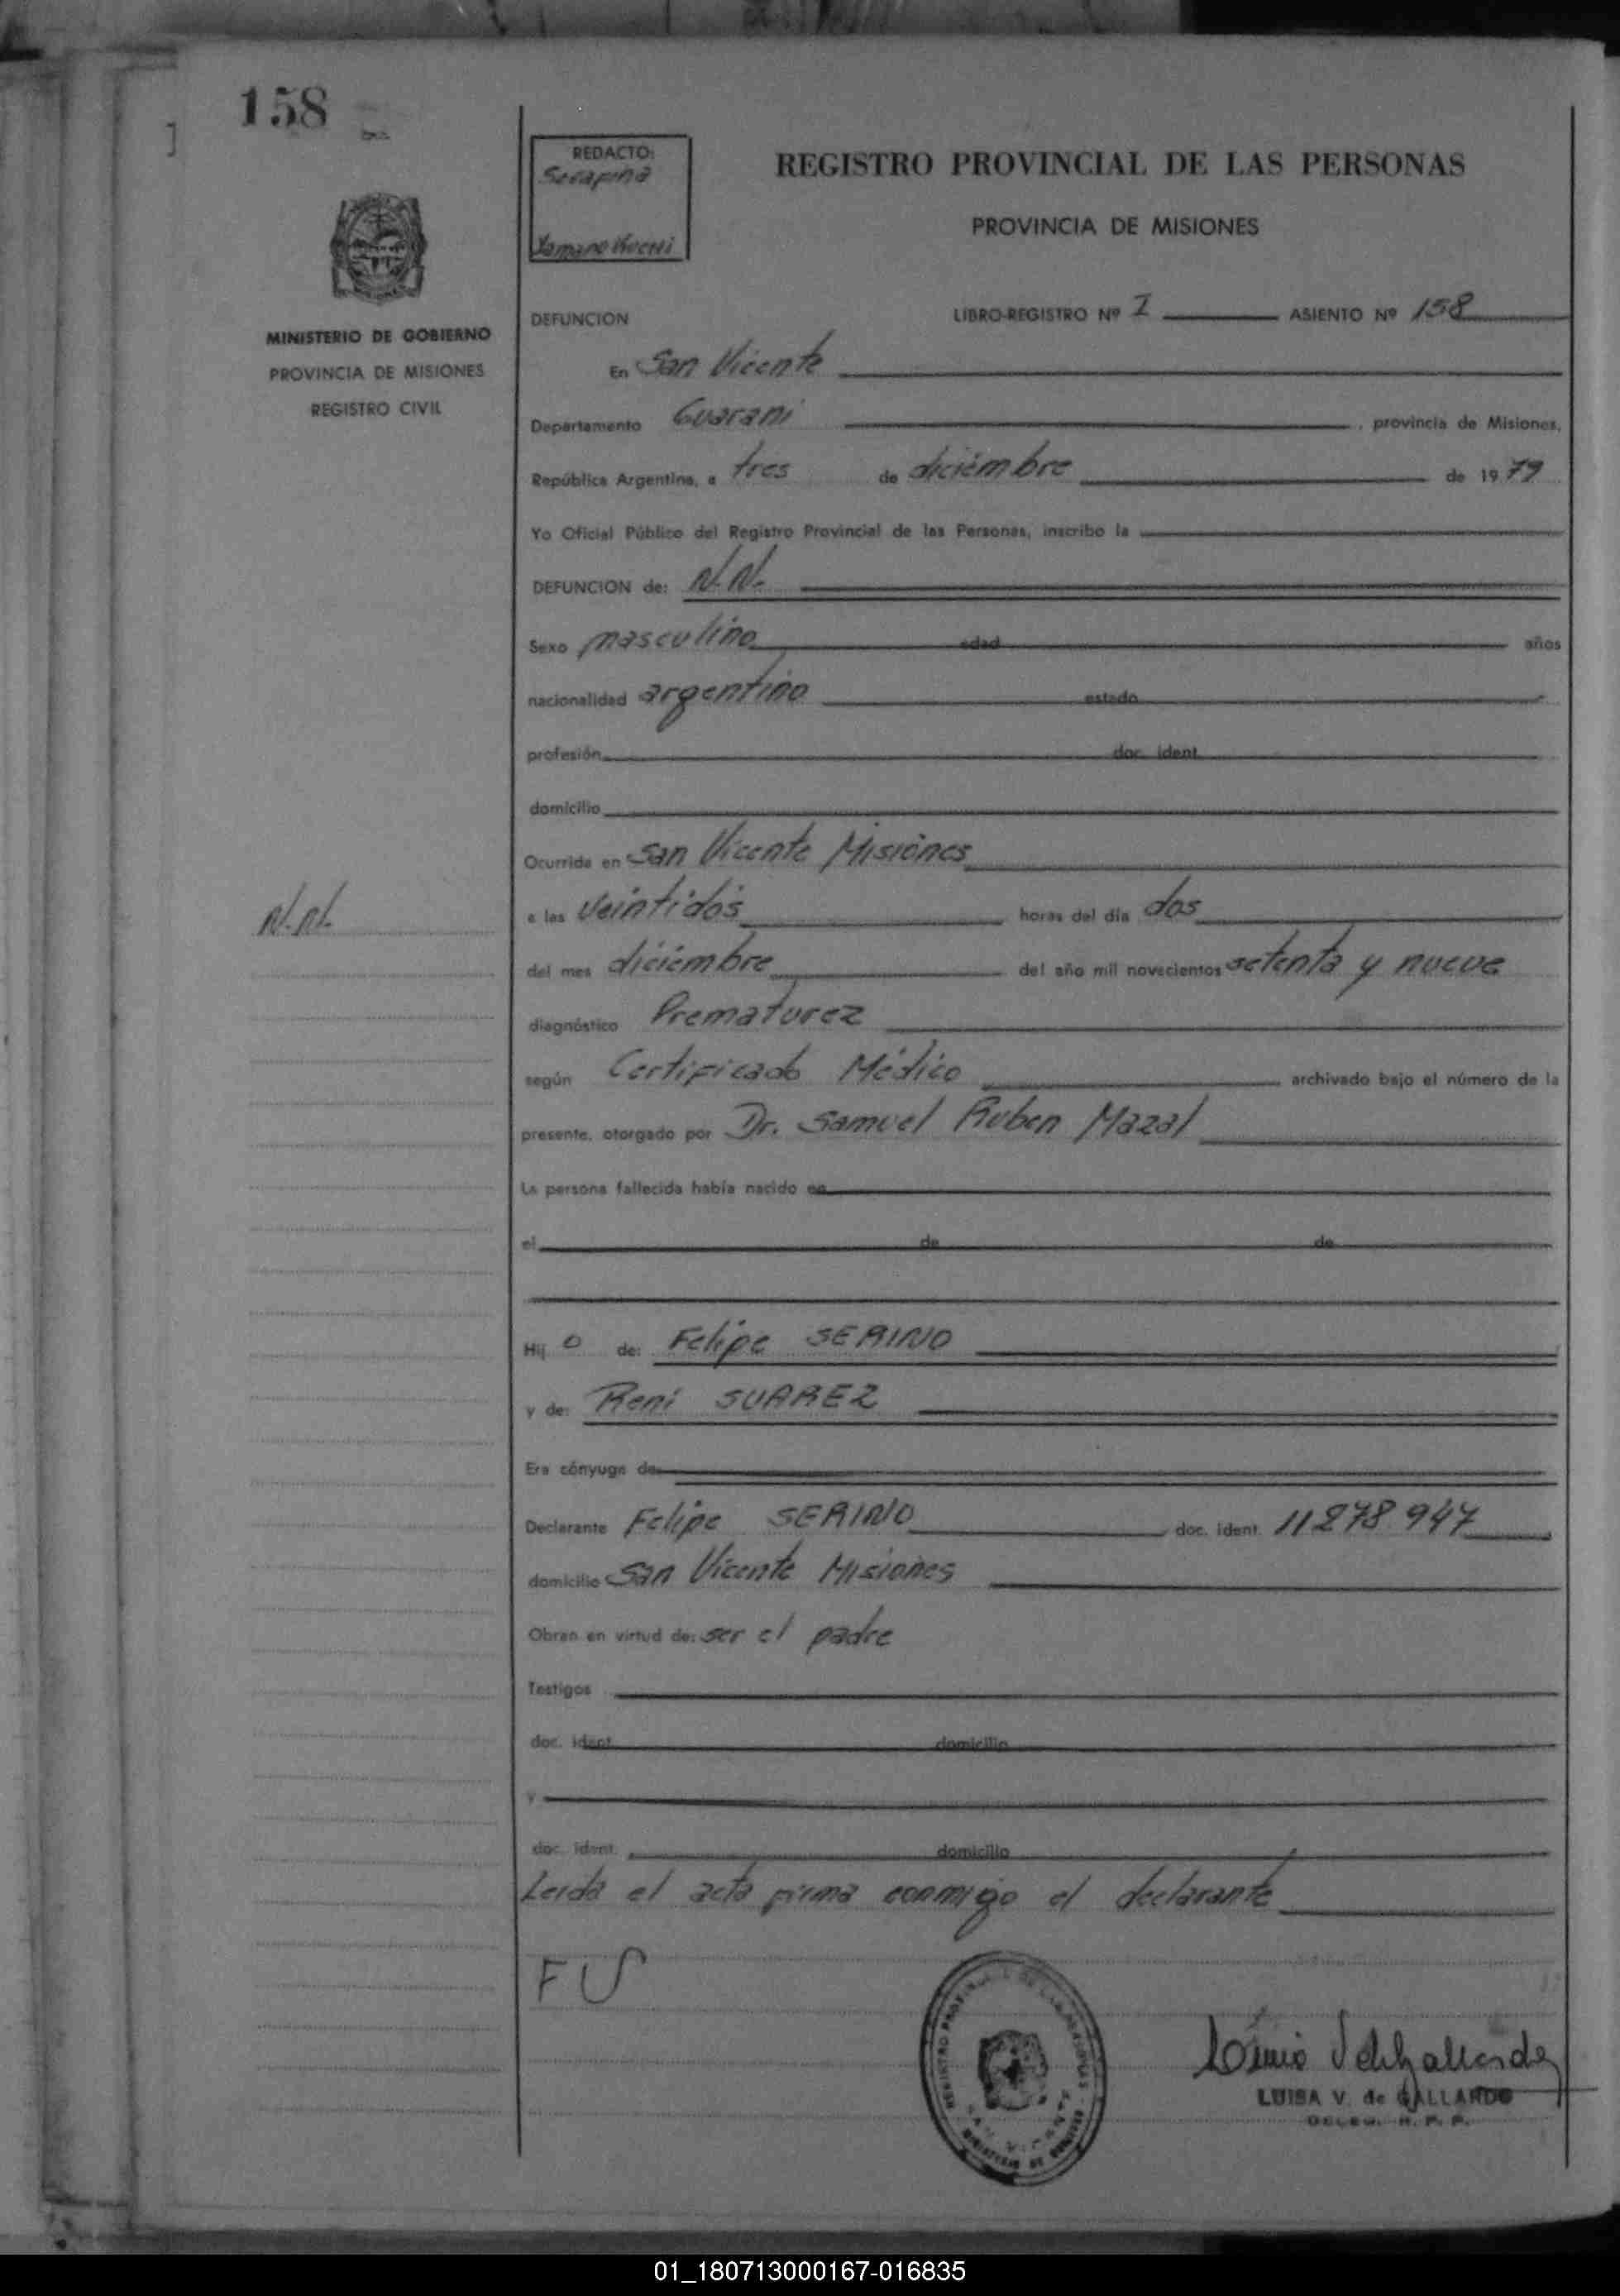 158
REDACTO:
Serapina
MINISTERIO DE GOBIERNO
PROVINCIA DE MISIONES
REGISTRO CIVIL
N.N.
REGISTRO PROVINCIAL DE LAS PERSONAS
PROVINCIA DE MISIONES
DEFUNCION LIBRO-REGISTRO Nº I ASIENTO Nº 158
En San Vicente
Departamento Guarani , provincia de Misiones,
República Argentina, a tres de diciémbre de 1979
Yo Oficial Público del Registro Provincial de las Personas, inscribo la
DEFUNCION de: N.N.
Sexo masculino edad años
nacionalidad argentino estado
profesión doc. ident.
domicilio
Ocurrida en San Vicente Misiónes
a las veintidós horas del día dos
del mes diciémbre del año mil novecientos setenta y nueve
diagnóstico Prematurez
según Certificado Médico archivado bajo el número de la
presente, otorgado por Dr. Samuel Ruben Mazal
La persona fallecida había nacido en
el de de
Hij o de: Felipe SERINO
y de: Reni SUAREZ
Era cónyuge de
Declarante Felipe SERINO doc. ident. 11278947
domicilio San Vicente Misiónes
Obran en virtud de: ser el padre
Testigos
doc. ident. domicilio
y
doc. ident. domicilio
Leida el acta firma conmigo el declarante
FS
LUISA V. de GALLARDO
DELEG. R. P. P.
01_180713000167-016835